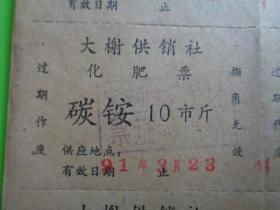 有效日期 止
大榭供销社
化肥票
过期作废
撕角无效
碳铵 10市斤
供应地点
有效日期 止
91年3月23
大榭供销社